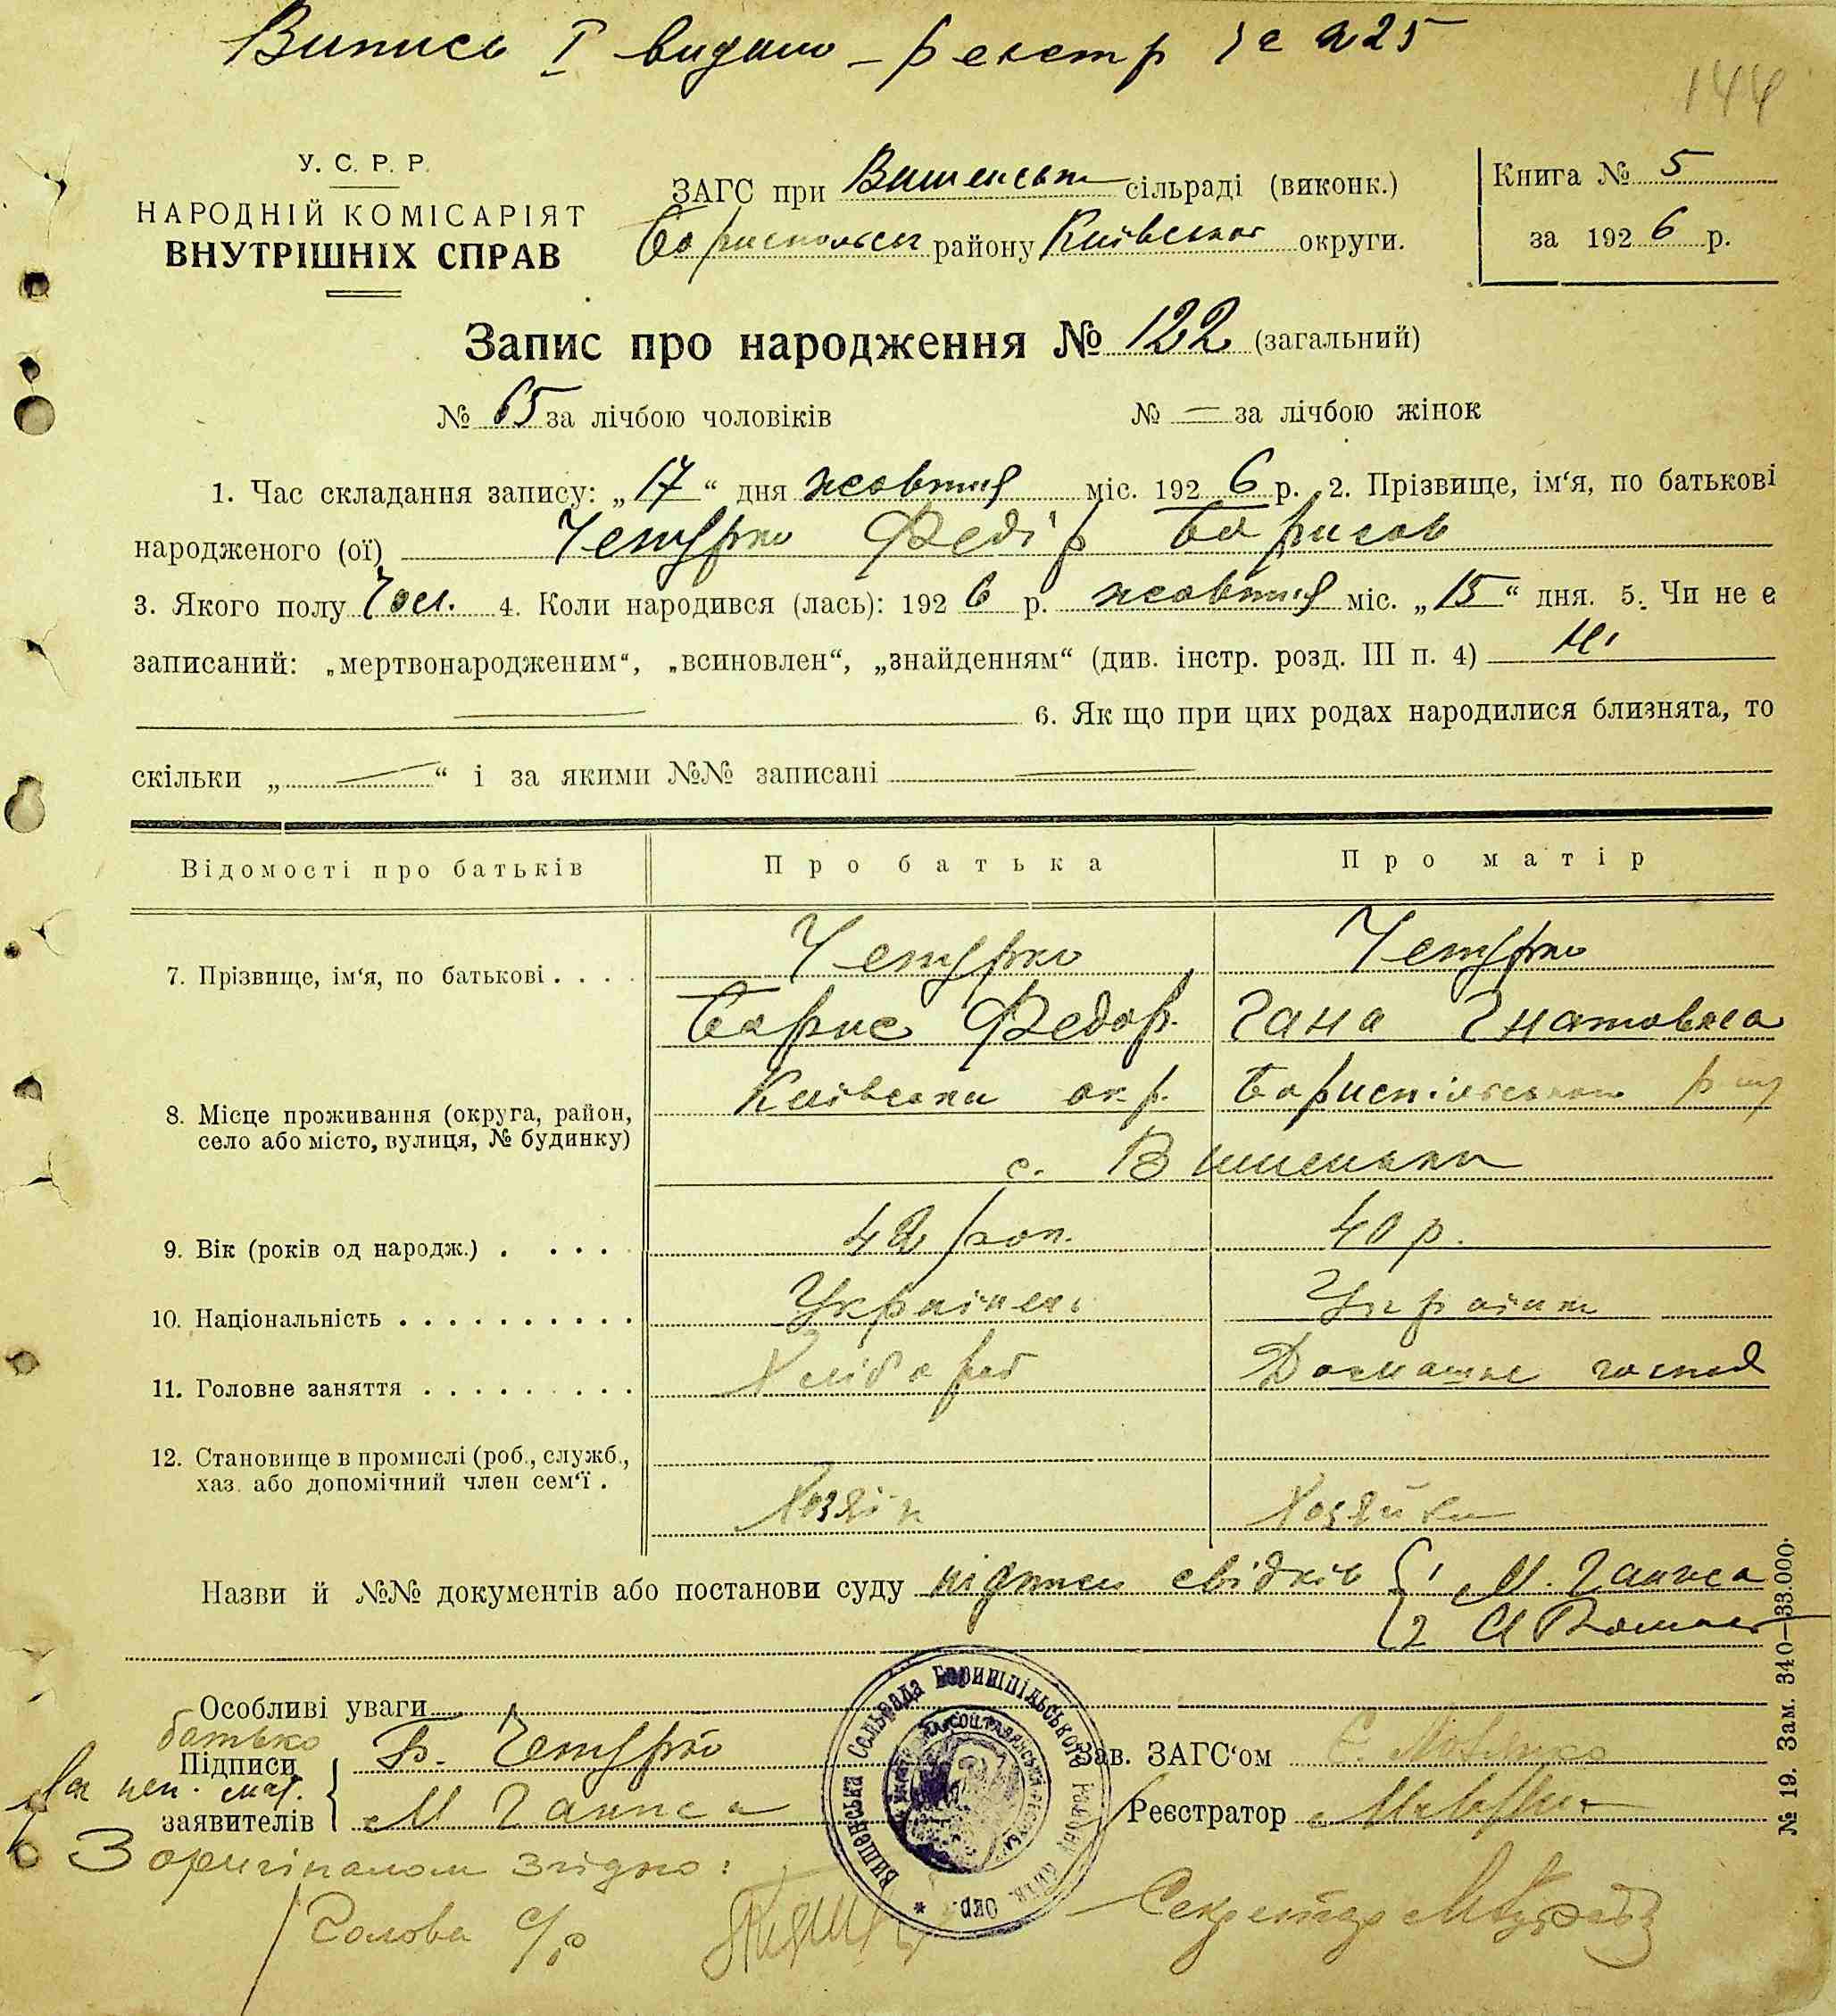 Випись I видано – реєстр
144
У. С. Р. Р.
НАРОДНІЙ КОМІСАРІЯТ
ВНУТРІШНІХ СПРАВ
ЗАГС при Вишенській сільраді (виконк.)
Бориспольськ району Київської округи.
Книга № 5
за 1926 р.
Запис про народження № 122 (загальний)
№ 65 за лічбою чоловіків № — за лічбою жінок
1. Час складання запису: „17“ дня жовтня міс. 1926 р. 2. Прізвище, ім‘я, по батькові
народженого (ої) Чемурко Федір Борисов
3. Якого полу Чол. 4. Коли народився (лась): 1926 р. жовтня міс. „15“ дня. 5. Чи не є
записаний: „мертвонародженим“, „всиновлен“, „знайденням“ (див. інстр. розд. III п. 4) Ні
— 6. Як що при цих родах народилися близнята, то
скільки „—“ і за якими №№ записані —
Відомості про батьків Про батька Про матір
7. Прізвище, ім‘я, по батькові . . . . Чемурко Чемурко
Борис Федор. Гана Гнатовна
8. Місце проживання (округа, район, село або місто, вулиця, № будинку) Київська окр. Бориспільського р-ну
с. Вишеньки
9. Вік (років од народж.) . . . . 42 рок. 40 р.
10. Національність . . . . . . . . . . Українець Українка
11. Головне заняття . . . . . . . . . Хлібороб Домашнє господ
12. Становище в промислі (роб., служб.,
хаз. або допомічний член сем‘ї .
Хозяїн Хозяйка
Назви й №№ документів або постанови суду підписи свідків { 1 М. Ганнса
2
Особливі уваги
батько
Підписи Б. Чемурко Зав. ЗАГС‘ом
заявителів М Ганнса Реєстратор
Вишенська Сельрада Боришпільського району Київ. Окр.
З оригіналом згідно:
Голова с/р Секретар
№ 19. Зам. 340—33.000.